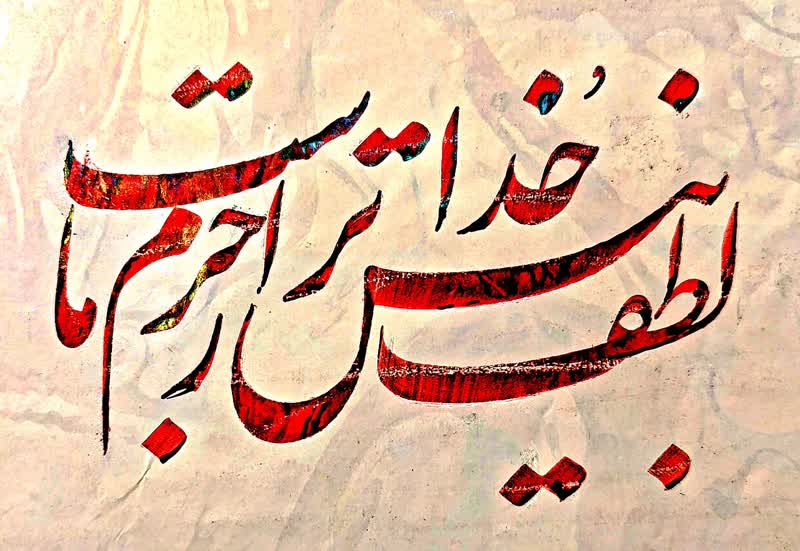 لطف خُدا بیشتر از جرم ماست